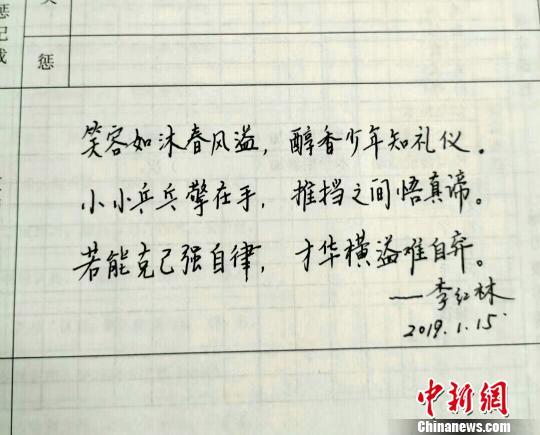 惩记载
惩
笑容如沐春风溢，醇香少年知礼仪。
小小乒乓擎在手，推挡之间悟真谛。
若能克己强自律，才华横溢难自弃。
——李红林
2019.1.15
中新网
Chinanews.com